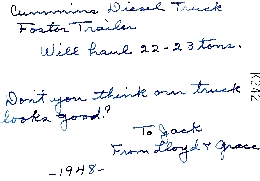 Cummins Diesel Truck
Foster Trailer
Will haul 22-23 tons.
Don't you think our truck
looks good?
To Jack
From Lloyd & Grace
-1948-
K242